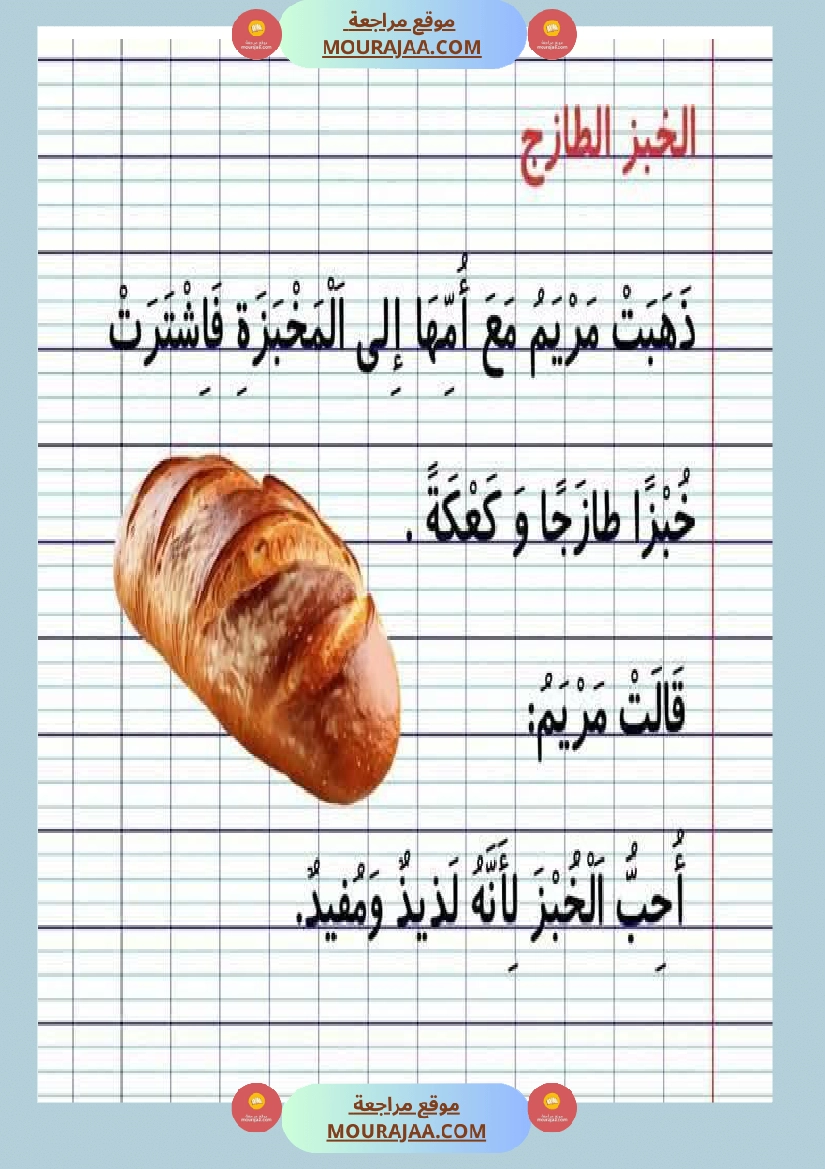 موقع مراجعة
MOURAJAA.COM
الخبز الطازج
ذَهَبَتْ مَرْيَمُ مَعَ أُمِّهَا إِلى اَلْمَخْبَزَةِ فَاِشْتَرَتْ
خُبْزًا طازَجًا وَ كَعْكَةً .
قَالَتْ مَرْيَمُ:
أُحِبُّ اَلْخُبْزَ لِأَنَّهُ لَذيذٌ وَمُفيدٌ.
موقع مراجعة
MOURAJAA.COM